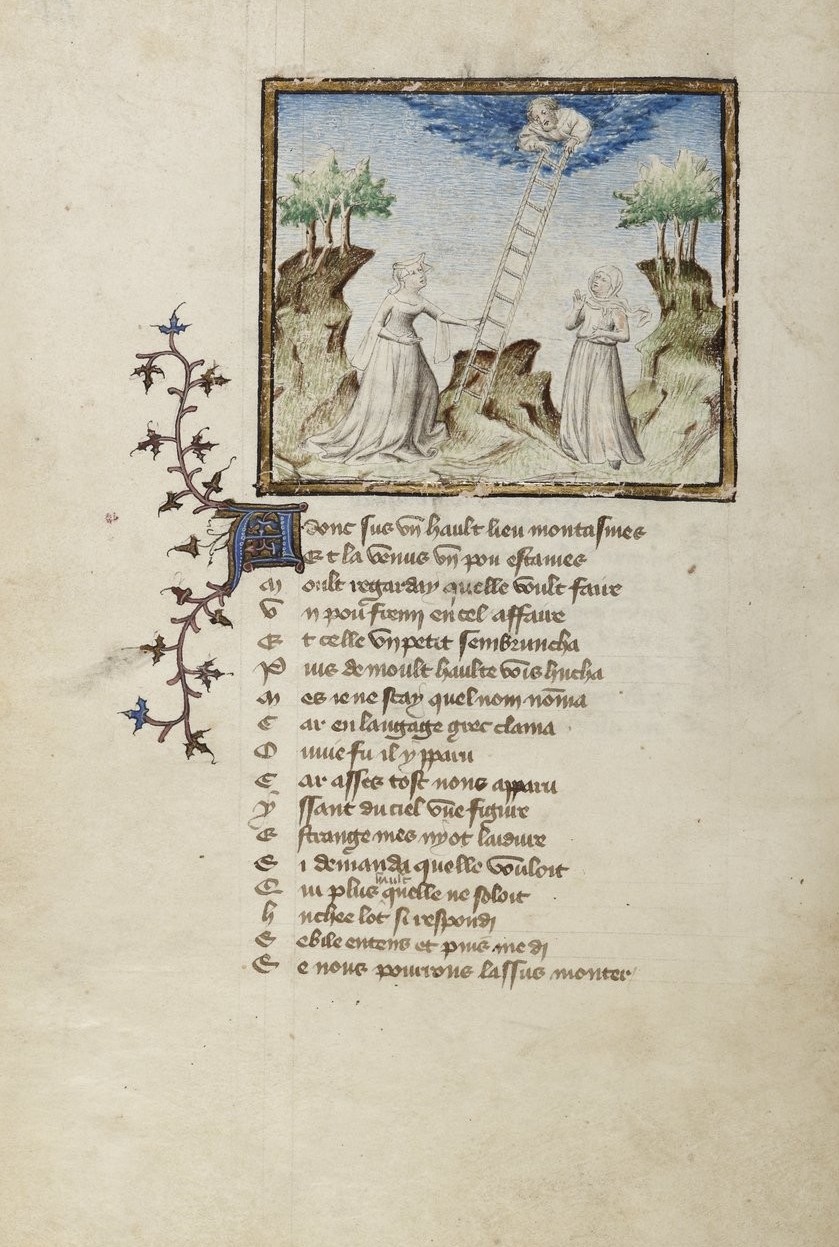 Adonc sus vn hault lieu montasmes
Et la venus vn pou estames
Moult regarday quelle voult faire
Vn pou fremi en cel affaire
Et celle vn petit sembruncha
Puis de moult haulte vois hucha
Mes ie ne scay quel nom nõma
Car en langage grec clama
Ouuie fu il y pparu
Car asses tost nous apparu
Yssant du ciel vne figure
Estrange mes nyot laidure
Si demanda quelle vouloit
Qui plus hault quelle ne soloit
huchee lot si respondi
Sebile entens et puis me di
Se nous pourrons lassus monter